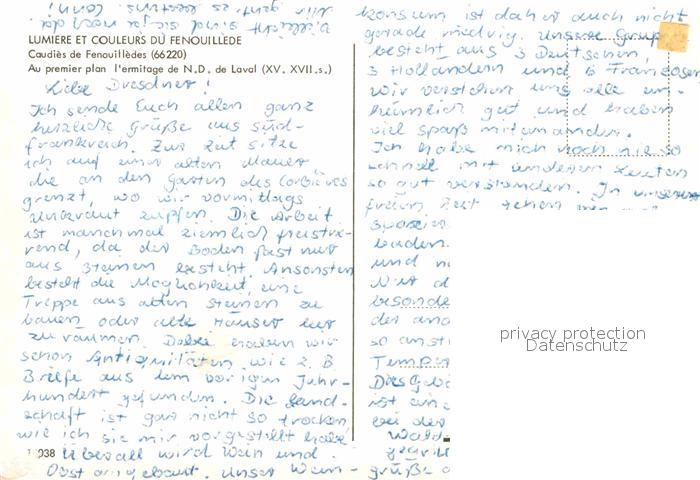 LUMIERE ET COULEURS DU FENOUILLEDE
Caudiès de Fenouillèdes (66220)
Au premier plan l'ermitage de N.D. de Laval (XV. XVII.s.)
Liebe Dresdner!
Ich sende Euch allen ganz
herzliche Grüße aus Süd-
frankreich. Zur Zeit sitze
ich auf einer alten Mauer
die an den Garten des Corbières
grenzt, wo wir vormittags
Unkraut zupfen. Die Arbeit
ist manchmal ziemlich frustrie-
rend, da der Boden fast nur
aus Steinen besteht. Ansonsten
besteht die Möglichkeit, eine
Treppe aus alten Steinen zu
bauen oder alte Häuser leer
zu räumen. Dabei haben wir
schon Antiquitäten wie z.B
Briefe aus dem vorigen Jahr-
hundert gefunden. Die Land-
schaft ist gar nicht so trocken,
wie ich sie mir vorgestellt habe
11038 Überall wird Wein und
Obst angebaut. Unser Wein-
konsum ist daher auch nicht
gerade niedrig. Unsere Grup
besteht aus 3 Deutschen,
3 Holländern und 6 Franzosen
Wir verstehen uns alle un-
heimlich gut und haben
viel Spaß miteinander.
Ich habe mich noch nie so
schnell mit anderen Leuten
so gut verstanden. In unserer
freien Zeit gehen
baden.
und
besonde
der and
so anst
Temper
ist ein
bei der
Wald
Grüße
Vielleicht sind sie ja noch da
privacy protection
Datenschutz